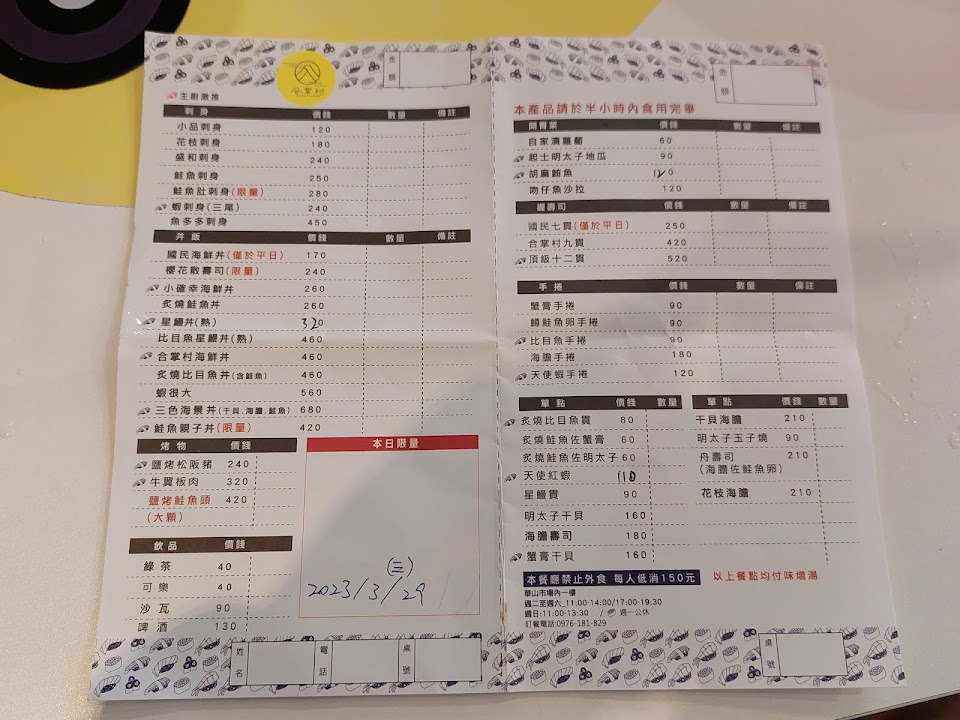 金額
合掌村
主廚激推
刺身 價錢 數量 備註
小品刺身 120
花枝刺身 180
盛和刺身 240
鮭魚刺身 250
鮭魚肚刺身(限量) 280
蝦刺身(三尾) 240
魚多多刺身 450
丼飯 價錢 數量 備註
國民海鮮丼(僅於平日) 170
櫻花散壽司(限量) 240
小確幸海鮮丼 260
炙燒鮭魚丼 260
星鰻丼(熟) 320
比目魚星鰻丼(熟) 460
合掌村海鮮丼 460
炙燒比目魚丼(含鮭魚) 460
蝦很大 560
三色海景丼(干貝.海膽.鮭魚) 680
鮭魚親子丼(限量) 420
烤物 價錢
鹽烤松阪豬 240
牛翼板肉 320
鹽烤鮭魚頭 420
(大顆)
飲品 價錢
綠茶 40
可樂 40
沙瓦 90
啤酒 130
本日限量
(三)
2023/3/29
姓名 電話 桌號
金額
本產品請於半小時內食用完畢
開胃菜 價錢 數量 備註
自家漬蘿蔔 60
起士明太子地瓜 90
胡麻鮪魚 120
吻仔魚沙拉 120
握壽司 價錢 數量 備註
國民七貫(僅於平日) 250
合掌村九貫 420
頂級十二貫 520
手捲 價錢 數量 備註
蟹膏手捲 90
鱒鮭魚卵手捲 90
比目魚手捲 90
海膽手捲 180
天使蝦手捲 120
單點 價錢 數量
炙燒比目魚貫 80
炙燒鮭魚佐蟹膏 60
炙燒鮭魚佐明太子 60
天使紅蝦 110
星鰻貫 90
明太子干貝 160
海膽壽司 180
蟹膏干貝 160
單點 價錢 數量
干貝海膽 210
明太子玉子燒 90
舟壽司 210
(海膽佐鮭魚卵)
花枝海膽 210
本餐廳禁止外食 每人低消150元
以上餐點均付味增湯
華山市場內一樓
週二至週六_11:00-14:00/17:00-19:30
週日:11:00-13:30 / 週一公休
訂餐電話:0976-181-829
桌號